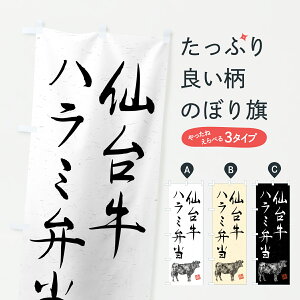 仙台牛
ハラミ弁当
たっぷり
良い柄
のぼり旗
やったね
えらべる 3タイプ
A
B
C
仙台牛
ハラミ弁当
仙台牛
ハラミ弁当
仙台牛
ハラミ弁当